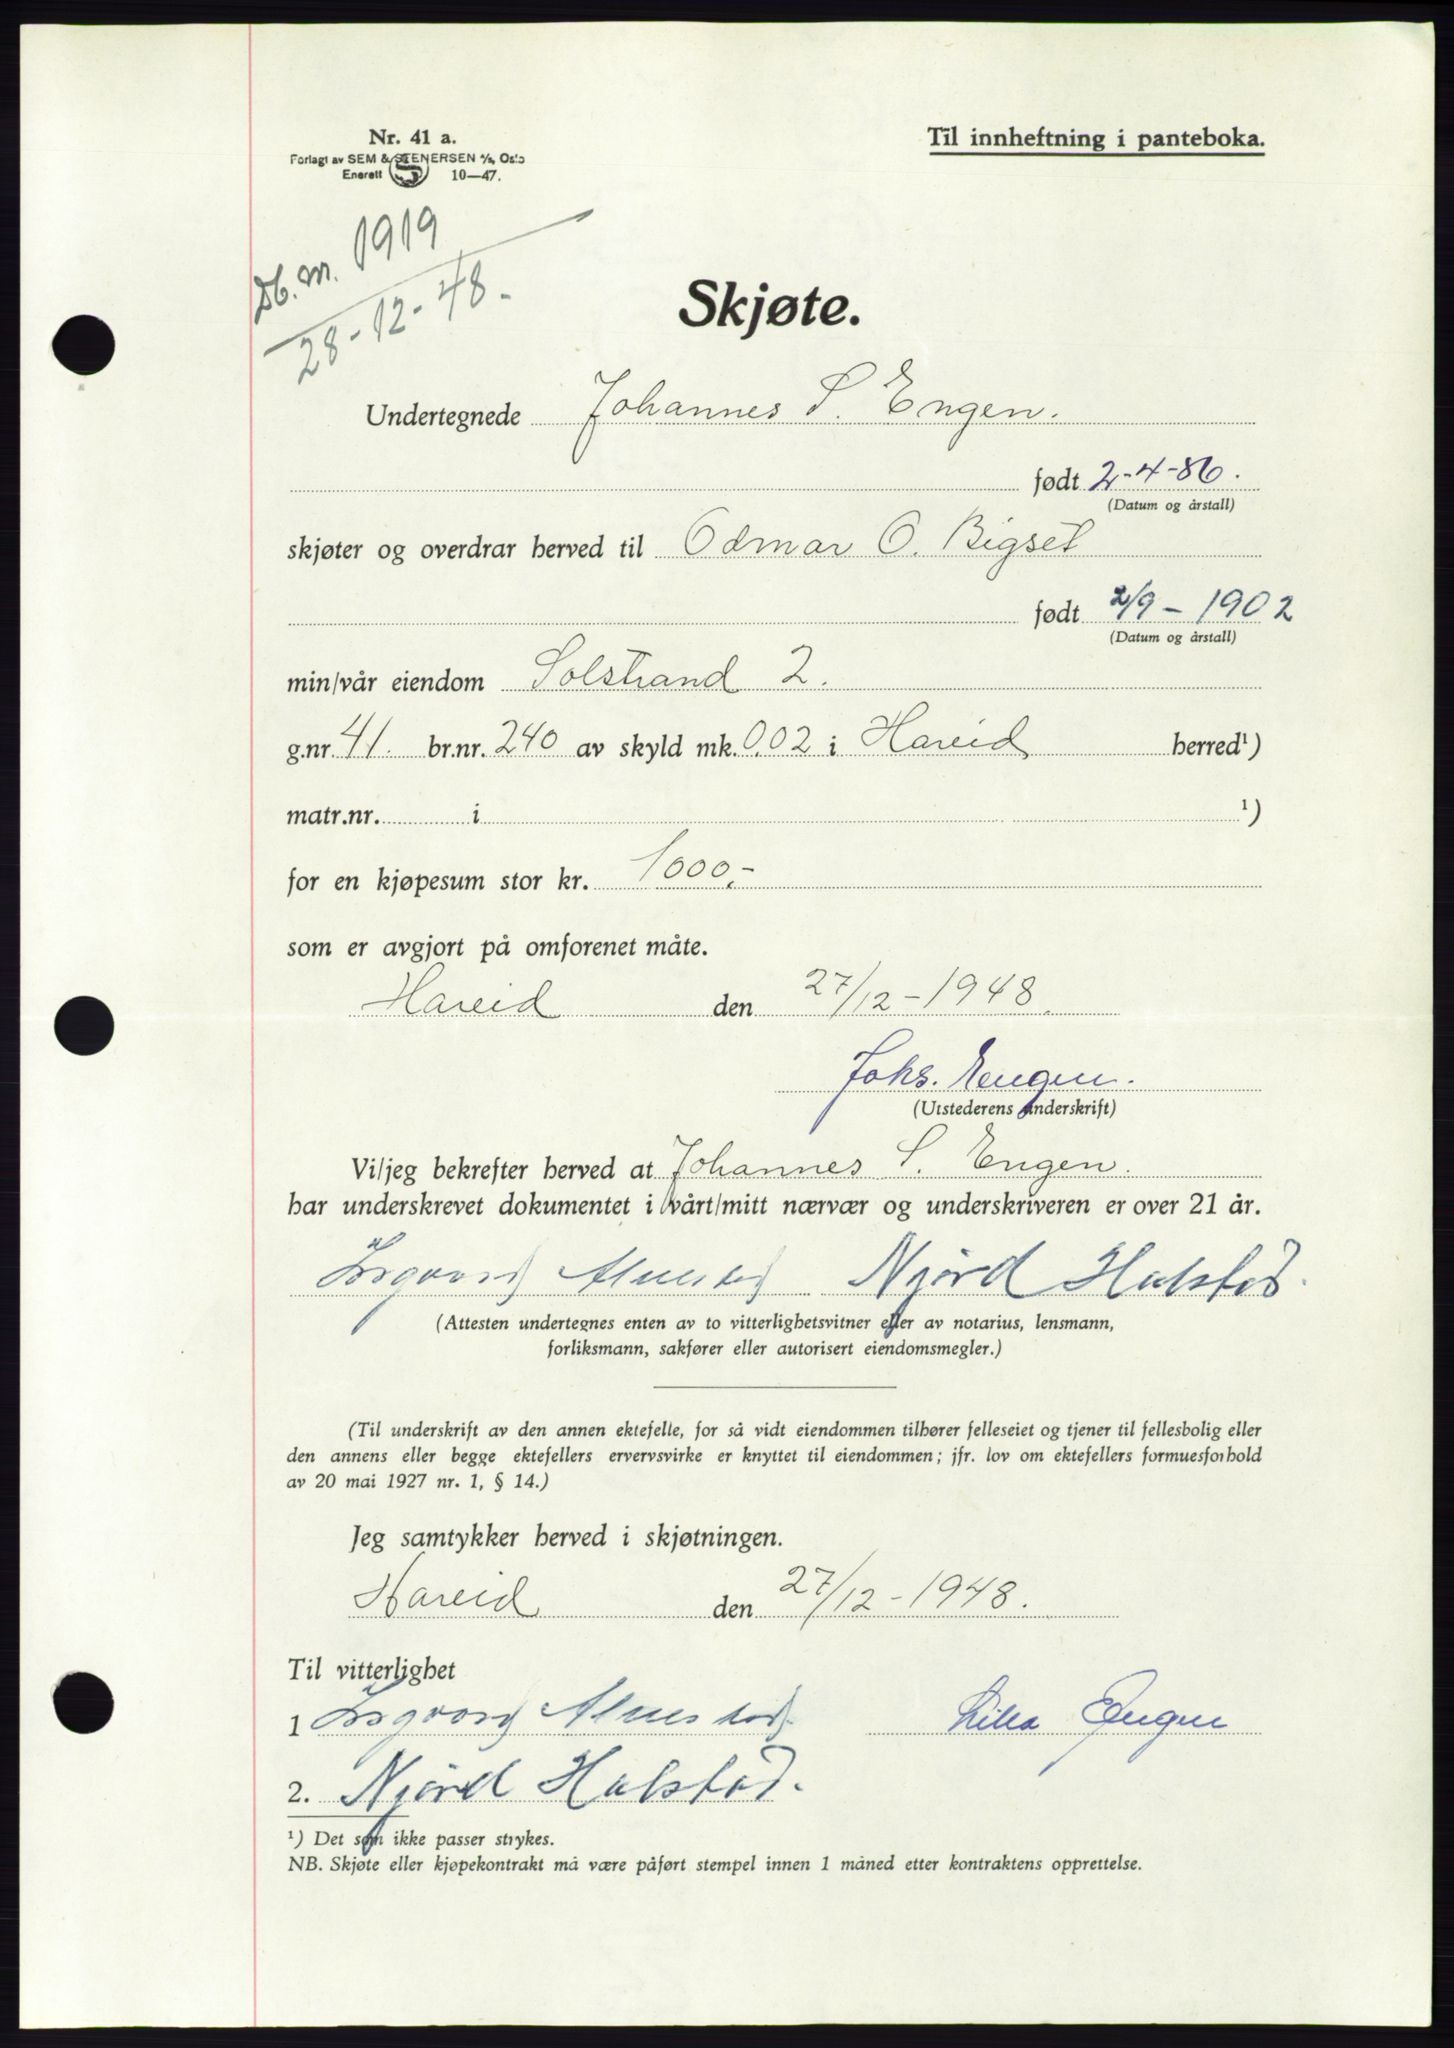 Nr. 41 a.
Forlagt av SEM & STENERSEN A/S, Oslo
Enerett 10—47.
Til innheftning i panteboka.
Db. nr. 1919
28-12-48.
Skjøte.
Undertegnede Johannes S. Engen.
født 2-4-86.
(Datum og årstall)
skjøter og overdrar herved til Odmar O. Bigset
født 2/9 - 1902
(Datum og årstall)
min/vår eiendom Solstrand 2.
g.nr. 41. br.nr. 240 av skyld mk. 0.02 i Hareid herred¹)
matr.nr. i ¹)
for en kjøpesum stor kr. 1000,-
som er avgjort på omforenet måte.
Hareid den 27/12-1948.
Johs. Engen.
(Utstederens underskrift)
Vi/jeg bekrefter herved at Johannes S. Engen.
har underskrevet dokumentet i vårt/mitt nærvær og underskriveren er over 21 år.
Njörd Halstad.
(Attesten undertegnes enten av to vitterlighetsvitner eller av notarius, lensmann,
forliksmann, sakfører eller autorisert eiendomsmegler.)
(Til underskrift av den annen ektefelle, for så vidt eiendommen tilhører felleseiet og tjener til fellesbolig eller
den annens eller begge ektefellers ervervsvirke er knyttet til eiendommen; jfr. lov om ektefellers formuesforhold
av 20 mai 1927 nr. 1, § 14.)
Jeg samtykker herved i skjøtningen.
Hareid den 27/12-1948.
Til vitterlighet
1 Engen
2. Njörd Halstad.
¹) Det som ikke passer strykes.
NB. Skjøte eller kjøpekontrakt må være påført stempel innen 1 måned etter kontraktens opprettelse.